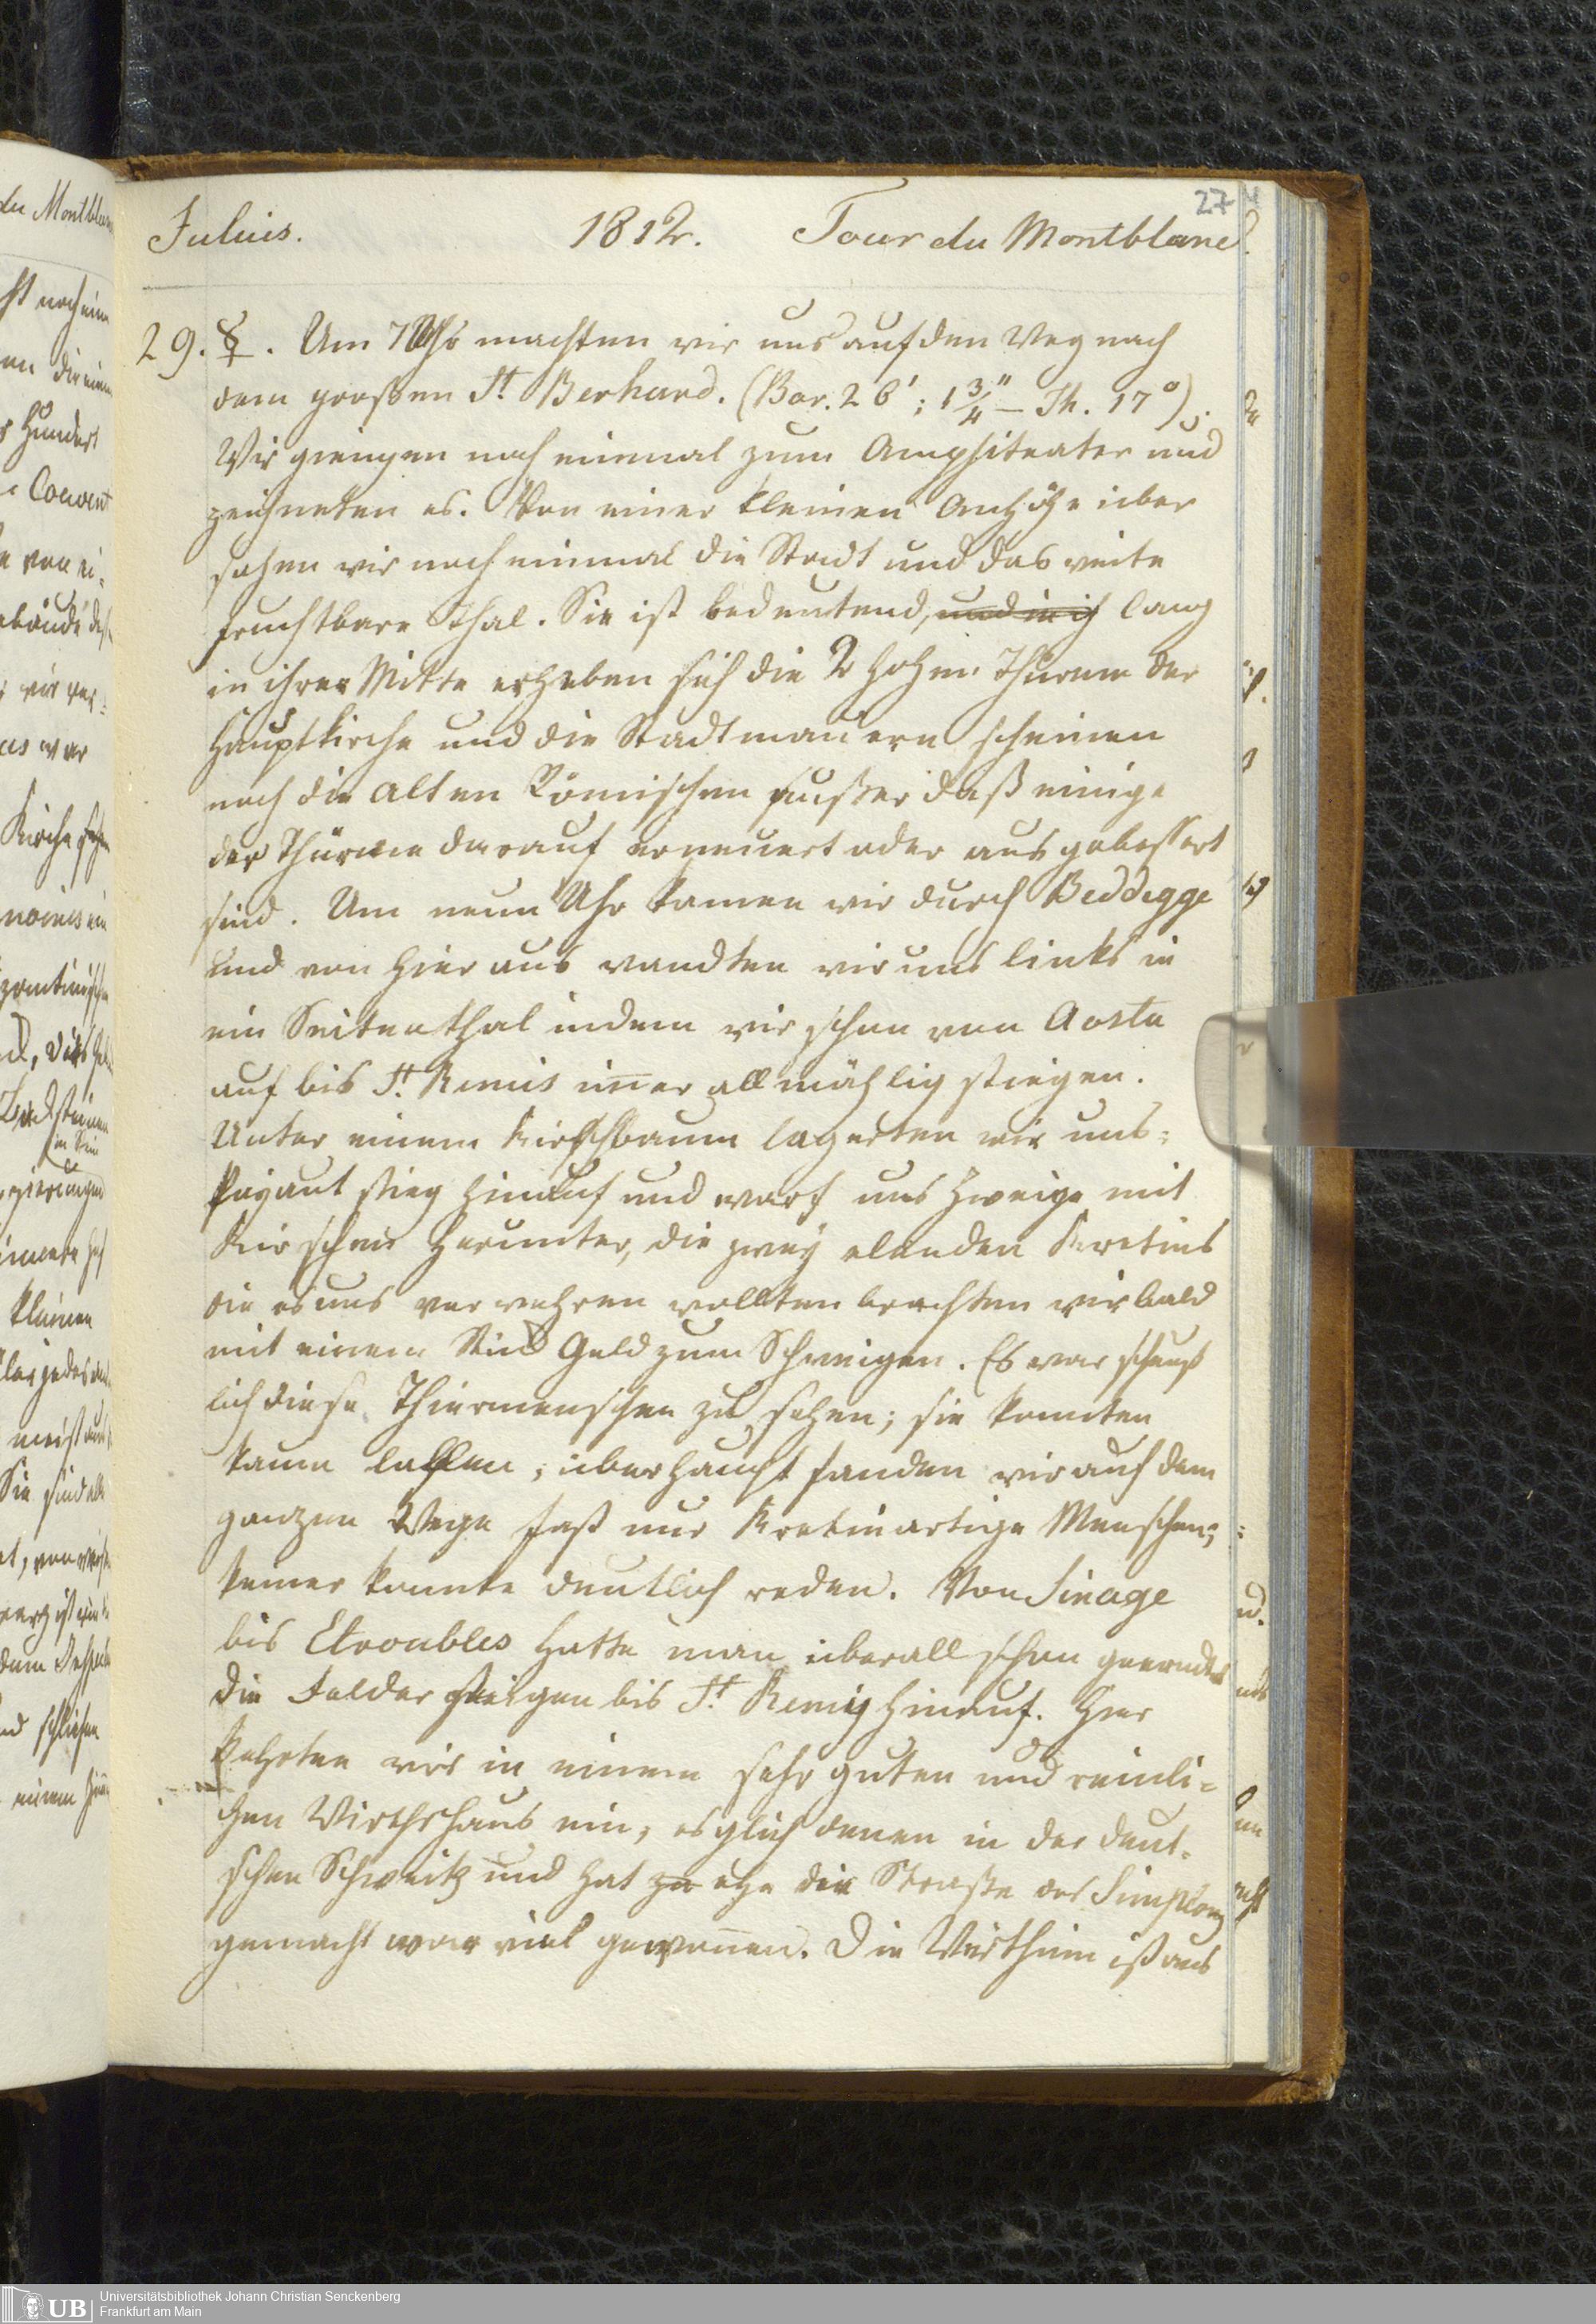 27
Julius. 1812. Tour du Montblanc.
29. ☿. Um 7 Uhr machten wir uns auf den Weg nach
dem großen St Berhard. (Bar. 26'; 1 3/4" – Th. 17°).
Wir giengen noch einmal zum Amphiteater und
zeichneten es. Von einer kleinen Anhöhe über
sahen wir noch einmal die Stadt und das weite
fruchtbare Thal. Sie ist bedeutend, und in ih lang
in ihrer Mitte erheben sich die 2 hohen Thürme der
Hauptkirche und die Stadtmauern scheinen
noch die alten Römischen außer daß einige
der Thürme darauf erneuert oder ausgebessert
sind. Um neun Uhr kamen wir durch Beddegge
und von hier aus wandten wir uns links in
ein Seitenthal indem wir schon von Aosta
auf bis St. Remis im̄er allmählig stiegen.
Unter einem Kirschbaum lagerten wir uns:
Payant stieg hinauf und warf uns Zweige mit
Kirschen herunter, die zwey elenden Kretins
die es uns verwehren wollten brachten wir bald
mit einem Stück Geld zum Schweigen. Es war scheuß
lich diese Thiermenschen zu sehen; sie konnten
kaum lallen; überhaupt fanden wir auf dem
ganzen Wege fast nur Kretinartige Menschen;
keiner konnte deutlich reden. Von Sinage
bis Etroubles hatte man überall schon geerndet
die Felder steigen bis St. Remy hinauf. Hier
kehrten wir in einem sehr guten und reinli-
chen Wirthshaus ein, es glich denen in der deut-
schen Schweitz und hat zu ehe die Straße des Simplons
gemacht war viel gewon̄en. Die Wirthinn ist aus
UB Universitätsbibliothek Johann Christian Senckenberg
Frankfurt am Main